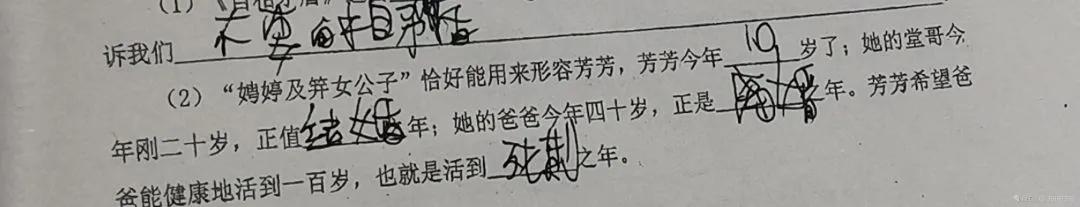 (1)《自相矛盾》
诉我们不要自相矛盾
(2)“娉婷及笄女公子”恰好能用来形容芳芳,芳芳今年10岁了;她的堂哥今
年刚二十岁,正值结婚年;她的爸爸今年四十岁,正是离婚之年。芳芳希望爸
爸能健康地活到一百岁,也就是活到死刑之年。